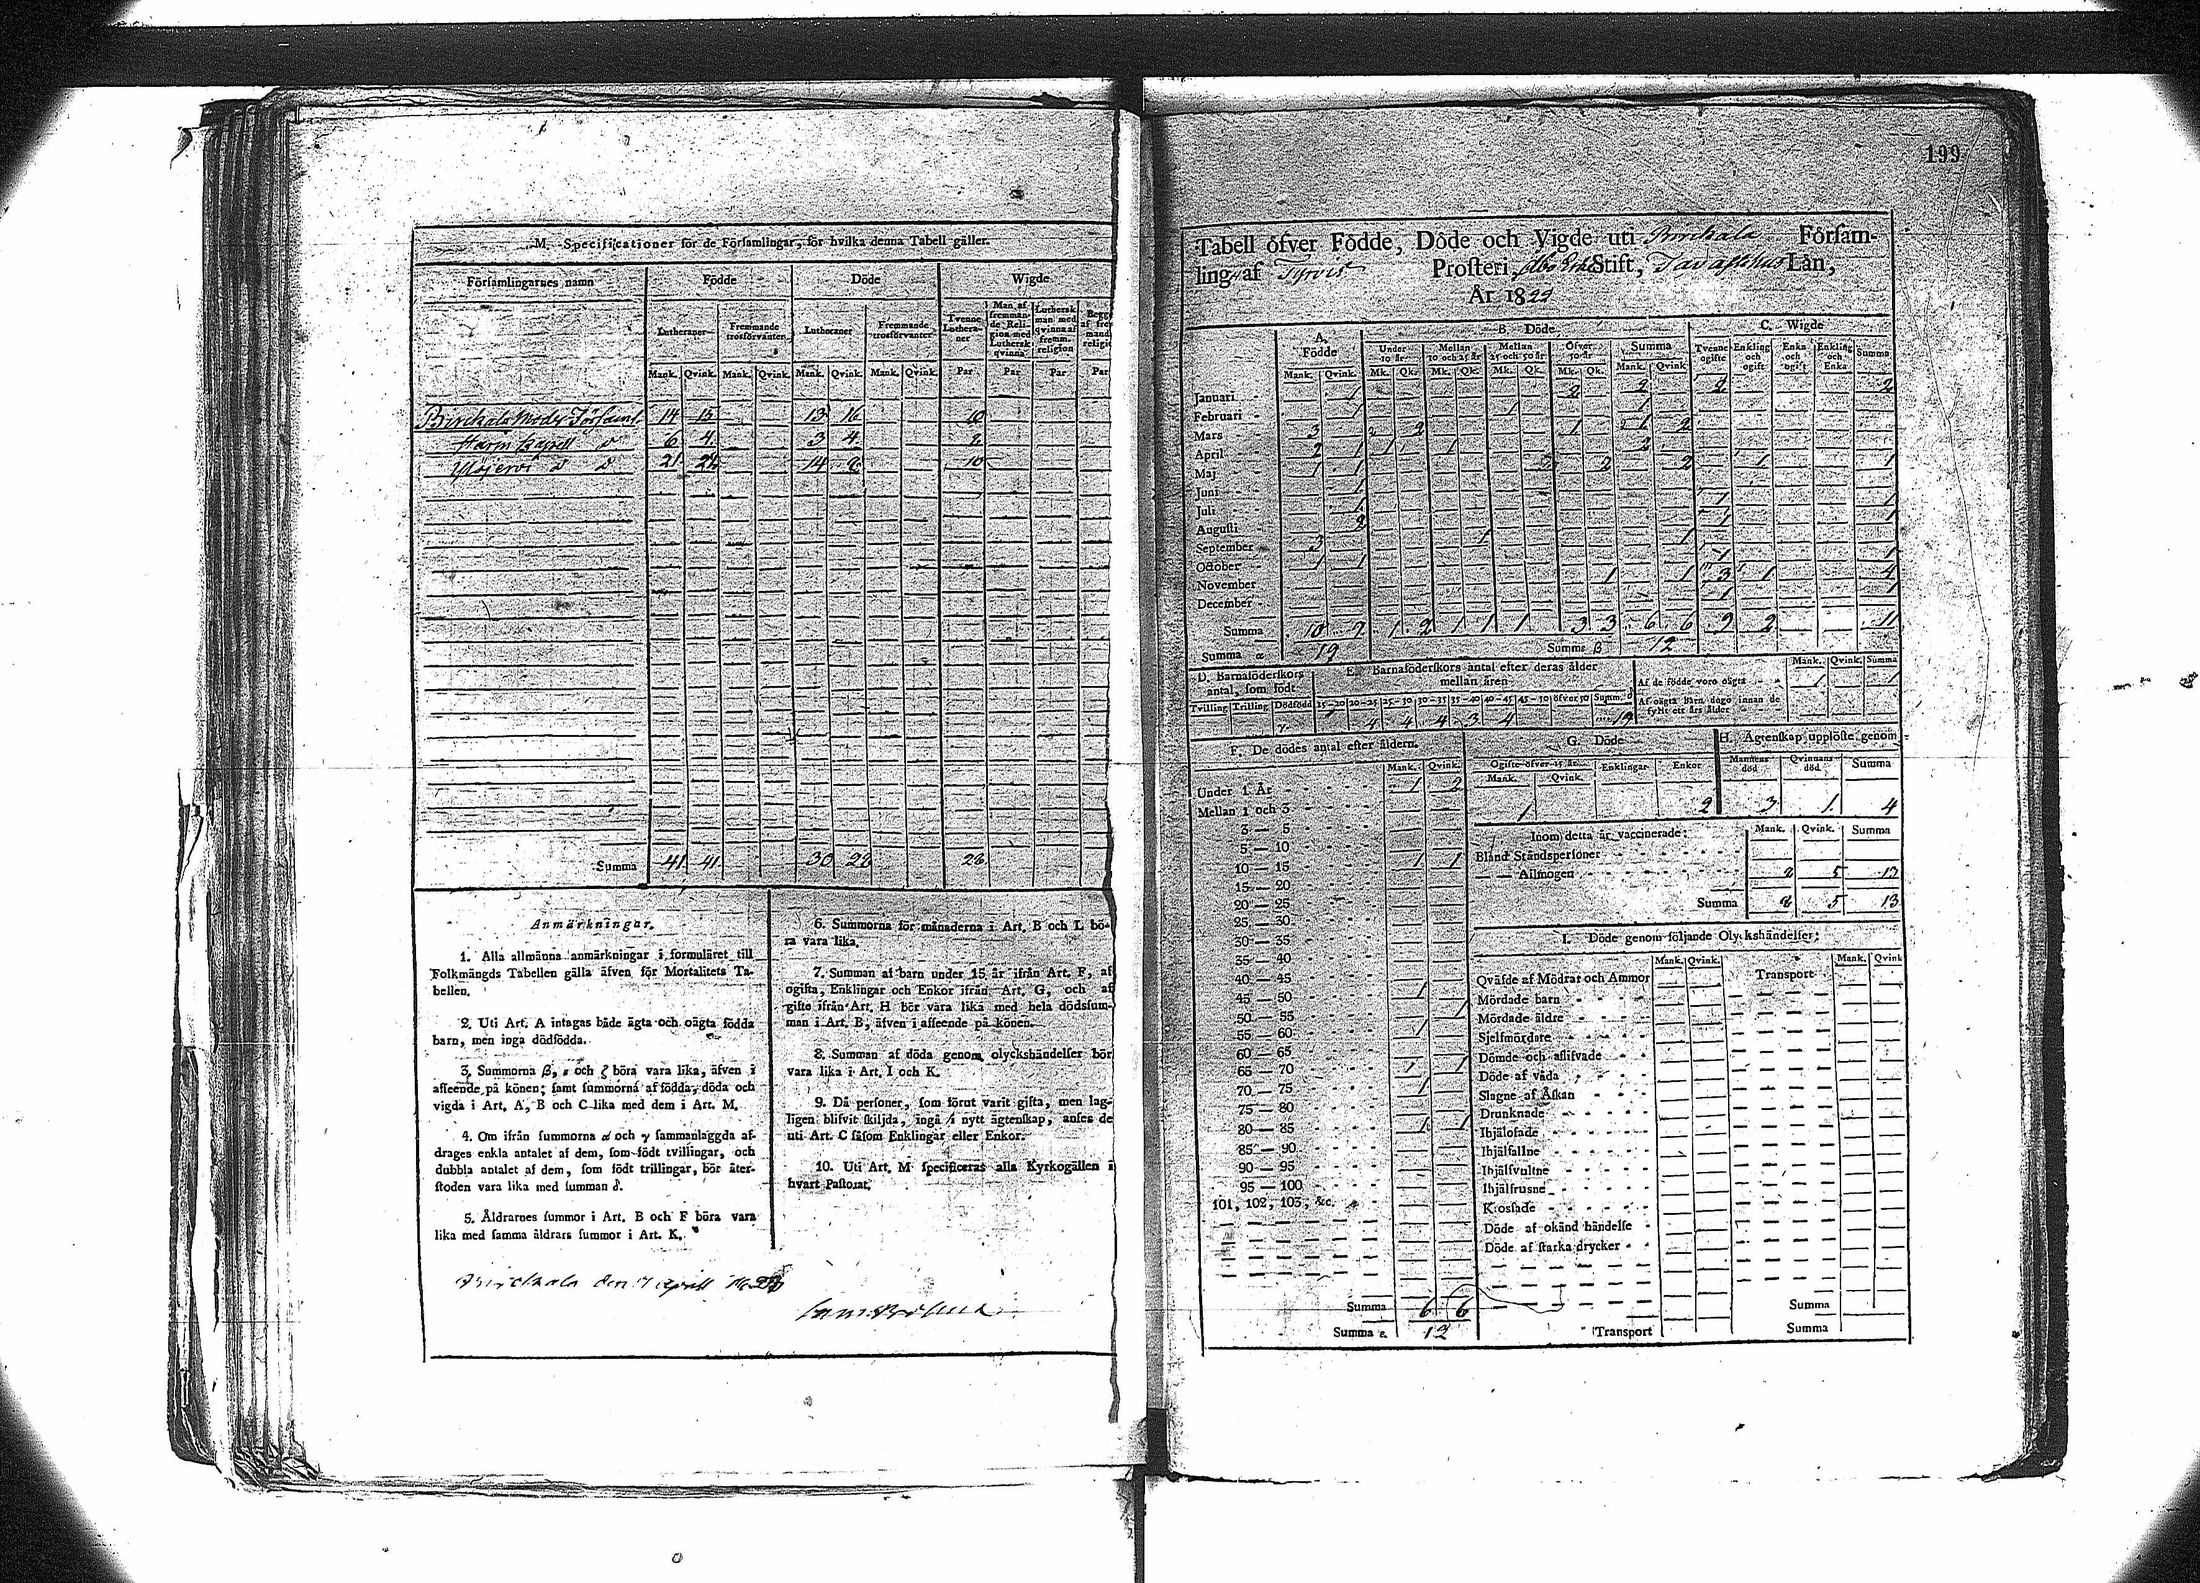 M. Specificationer för de Församlingar, för hvilka denna Tabell gäller.
Församlingarnes namn Födde Döde Wigde
Lutheraner Fremmande trosförvanter Lutheraner Fremmande trosförvanter Tvenne Lutheraner Man af fremmande Religion med Luthersk qvinna Luthersk man med qvinna af fremm. religion
Mank. Qvink. Mank. Qvink. Mank. Qvink. Mank. Qvink. Par Par Par Par
Birckala Moder Församl. 14 15 13 16 10
Harju Capell d 6 4 3 4 2
Ylöjervi d d 21 22 14 8 10
Summa 41 41 30 28 28
Anmärkningar.
1. Alla allmänna anmärkningar i formuläret till
Folkmängds Tabellen gälla äfven för Mortalitets Ta-
bellen.
2. Uti Art. A intagas både ägta och oägta födda
barn, men inga dödfödda.
3. Summorna β, ε och ζ böra vara lika, äfven i
afseende på könen; samt summorna af födda, döda och
vigda i Art. A, B och C lika med dem i Art. M.
4. Om ifrån summorna α och γ sammanlaggda af-
drages enkla antalet af dem, som födt tvillingar, och
dubbla antalet af dem, som födt trillingar, bör åter-
stoden vara lika med summan δ.
5. Åldrarnes summor i Art. B och F böra vara
lika med samma åldrars summor i Art. K.
6. Summorna för månaderna i Art. B och L bö-
ra vara lika.
7. Summan af barn under 15 år ifrån Art. F, af
ogifta, Enklingar och Enkor ifrån Art. G, och af
gifte ifrån Art. H bör vara lika med hela dödssum-
man i Art. B, äfven i afseende på könen.
8. Summan af döda genom olyckshändelser bör
vara lika i Art. I och K.
9. Då personer, som förut varit gifta, men lag-
ligen blifvit skiljda, ingå i nytt ägtenskap, anses de
uti Art. C såsom Enklingar eller Enkor.
10. Uti Art. M specificeras alla Kyrkogällen i
hvart Pastorat.
Birckala den april
199
Tabell öfver Födde, Döde och Vigde uti Birckala Försam-
ling af Tyrvis Prosteri, Åbo Stift, Tavastehus Län,
År 18
A. Födde B. Döde C. Wigde
Under 10 år. Mellan 10 och 25 år Mellan 25 och 50 år Öfver 50 år. Summa Tvenne ogifte Enkling och ogift Enka och ogift Enkling och Enka Summa
Mank. Qvink. Mk. Qk. Mk. Qk. Mk. Qk. Mk. Qk. Mank. Qvink
Januari 1 2 2 2 2
Februari 1 1 1
Mars 3 2 1 1 2
April 2 1 1 1 2
Maj 1 1 2 2 1 1
Juni 1
Juli 1 1 1
Augusti 2 1 1
September 3 1 1
October 1 1 1 1
November 1 1 3 1 4
December 1 1
Summa 10 9 1 2 1 1 1 3 3 6 6 9 2 11
Summa α 19 Summa β 12
D. Barnaföderskors antal, som födt
Tvilling Trilling Dödfödd
E. Barnaföderskors antal efter deras ålder mellan åren
15-20 20-25 25-30 30-35 35-40 40-45 45-50 öfver 50 Summ. δ
4 4 4 3 4 19
Mank. Qvink. Summa
Af de födde voro oägta 1 1
Af oägta Barn dögo innan de fyllt ett års ålder
F. De dödes antal efter åldern.
Mank. Qvink.
Under 1 År 1 2
Mellan 1 och 3
3 — 5
5 — 10
10 — 15 1 1
15 — 20
20 — 25
25 — 30
30 — 35
35 — 40
40 — 45
45 — 50 1
50 — 55 1
55 — 60 1
60 — 65
65 — 70 1 1
70 — 75 1
75 — 80
80 — 85 1 1
85 — 90
90 — 95
95 — 100
101, 102, 103, &c.
Summa 6 6
Summa ε. 12
G. Döde
Ogifte öfver 15 år. Enklingar Enkor
Mank. Qvink.
1 2
H. Ägtenskap upplöste genom
Mannens död Qvinnans död. Summa
3 1 4
Inom detta år vaccinerade: Mank. Qvink. Summa
Bland Ståndspersoner
— — Allmogen 8 5 13
Summa 8 5 13
I. Döde genom följande Olyckshändelser:
Mank. Qvink. Mank. Qvink
Qväfde af Mödrar och Ammor Transport
Mördade barn
Mördade äldre
Sjelfmördare
Dömde och aflifvade
Döde af våda
Slagne af Åskan
Drunknade
Ihjälosade
Ihjälfallne
Ihjälsvultne
Ihjälfrusne
Krossade
Döde af okänd händelse
Döde af starka drycker
Summa
Transport Summa